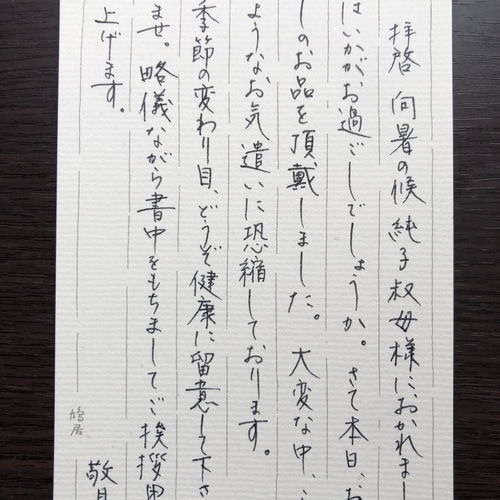 拝啓 向暑の候 純子叔母様におかれまし
はいかがお過ごしでしょうか。さて本日、お
しのお品を頂戴しました。大変な中、こ
ようなお気遣いに恐縮しております。
季節の変わり目、どうぞ健康に留意して下さ
ませ。略儀ながら書中をもちましてご挨拶申
上げます。
敬具
鳩居